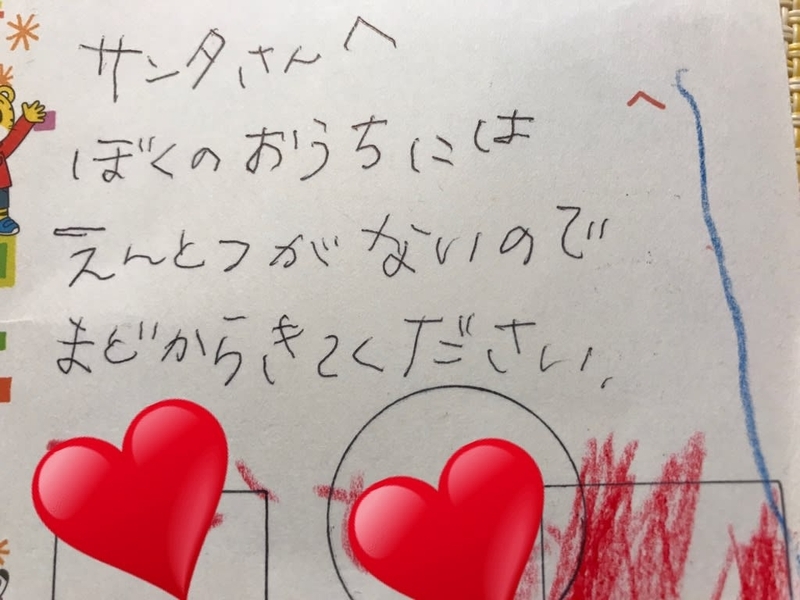 サンタさんへ
ぼくのおうちには
えんとつがないので
まどからきてください.